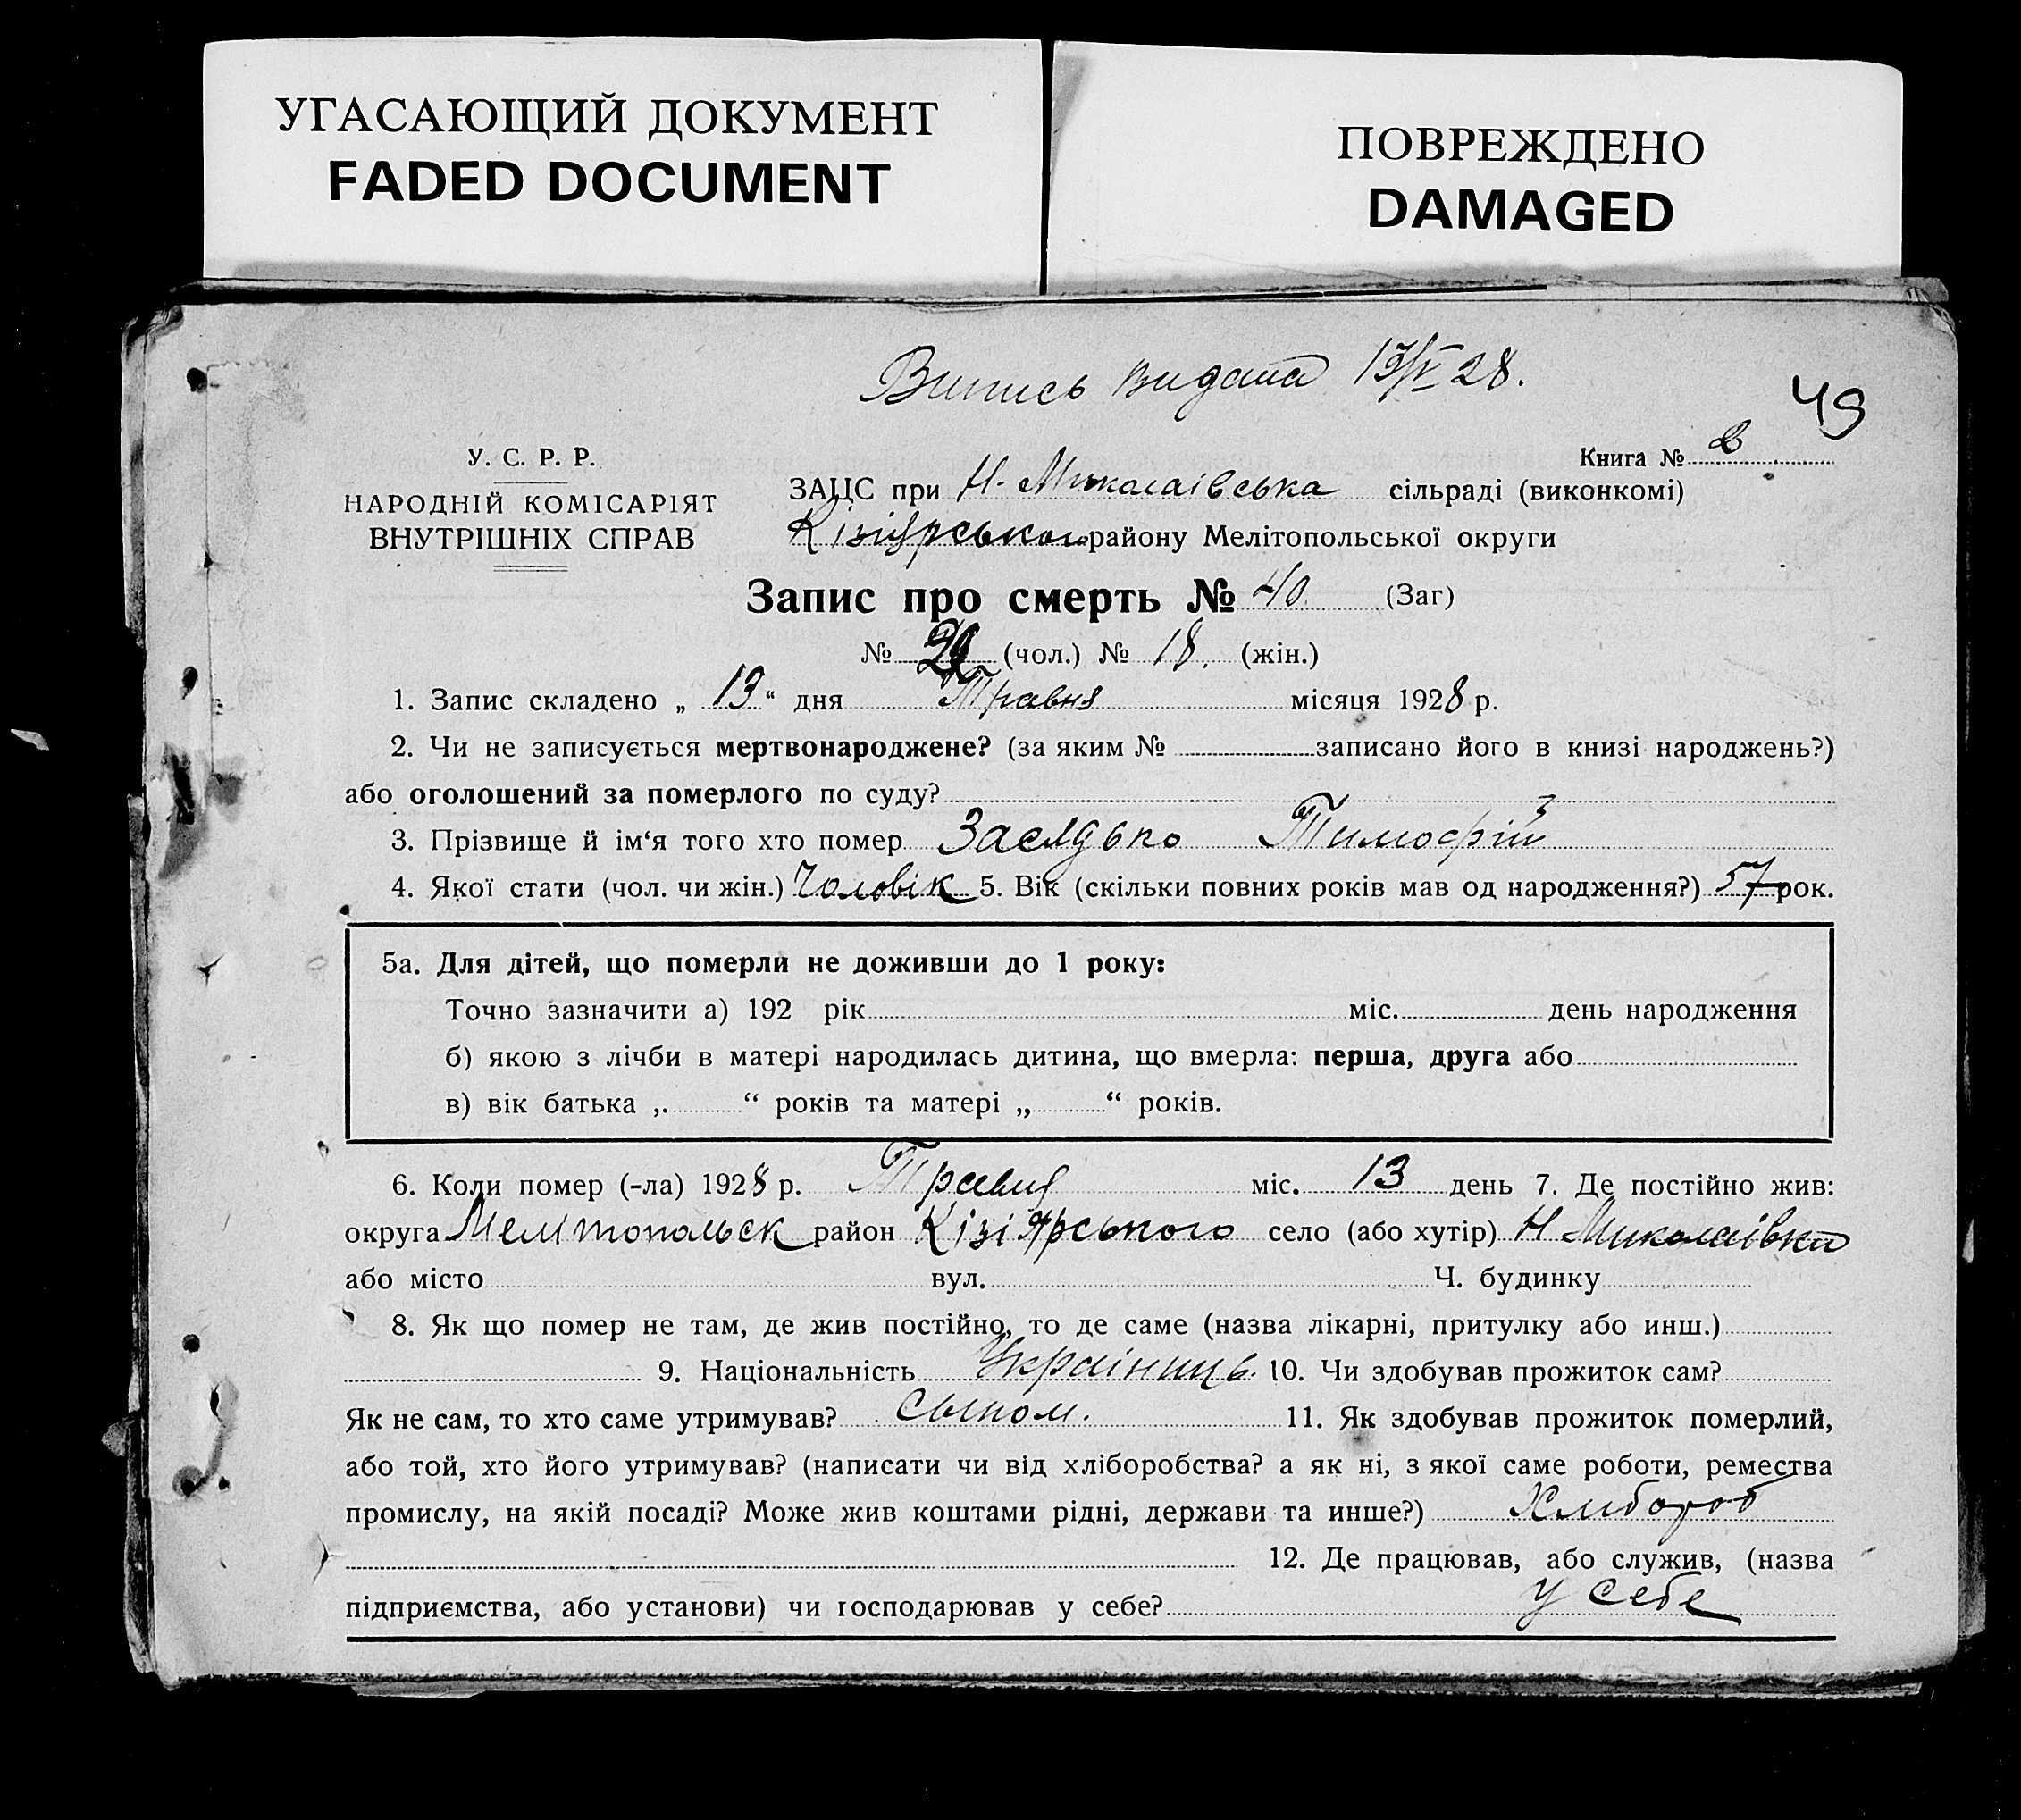 УГАСАЮЩИЙ ДОКУМЕНТ
FADED DOCUMENT
ПОВРЕЖДЕНО
DAMAGED
Випись видана 13/V 28.
49
У. С. Р. Р.
НАРОДНІЙ КОМІСАРІЯТ
ВНУТРІШНІХ СПРАВ
Книга № 2
ЗАЦС при Н. Миколаівська сільраді (виконкомі)
Кізіярського району Мелітопольської округи
Запис про смерть № 40 (Заг)
№ (чол.) № 18. (жін.)
1. Запис складено „ 13 “ дня Травня місяця 1928 р.
2. Чи не записується мертвонароджене? (за яким № записано його в книзі народжень?)
або оголошений за померлого по суду?
3. Прізвище й ім‘я того хто помер Заядько Тимофій
4. Якої стати (чол. чи жін.) Чоловік 5. Вік (скільки повних років мав од народження?) 57 рок.
5а. Для дітей, що померли не доживши до 1 року:
Точно зазначити а) 192 рік міс. день народження
б) якою з лічби в матері народилась дитина, що вмерла: перша, друга або
в) вік батька „ “ років та матері „ “ років.
6. Коли помер (-ла) 1928 р. Травня міс. 13 день 7. Де постійно жив:
округа Мелітопольск район Кізіярського село (або хутір) Н Миколаівка
або місто вул. Ч. будинку
8. Як що помер не там, де жив постійно, то де саме (назва лікарні, притулку або инш.)
9. Національність Украінець. 10. Чи здобував прожиток сам?
Як не сам, то хто саме утримував? Сыном. 11. Як здобував прожиток померлий,
або той, хто його утримував? (написати чи від хліборобства? а як ні, з якої саме роботи, ремества
промислу, на якій посаді? Може жив коштами рідні, держави та инше?) Хлибороб
12. Де працював, або служив, (назва
підприємства, або установи) чи господарював у себе? у себе